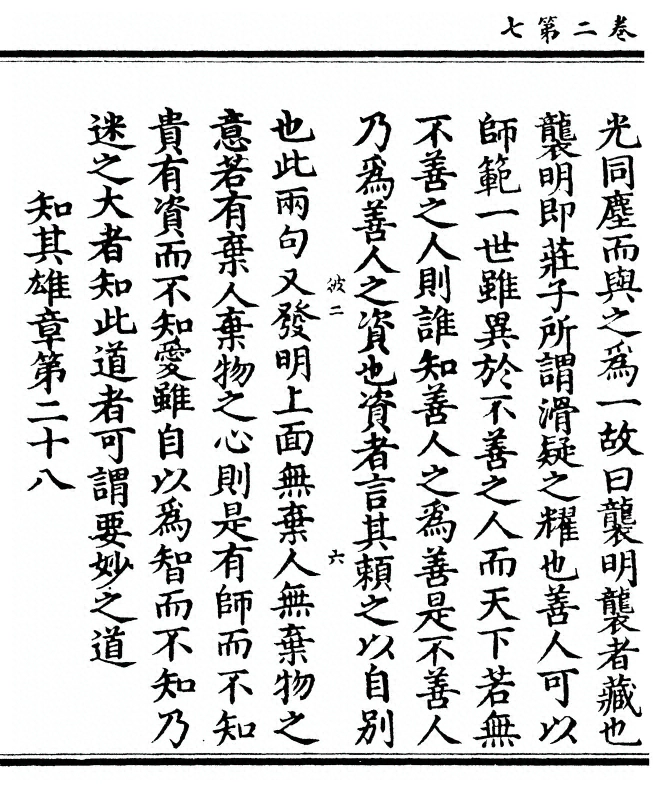 七第二卷
光同塵而與之爲一故曰襲明襲者藏也
襲明即莊子所謂滑疑之耀也善人可以
師範一世雖異於不善之人而天下若無
不善之人則誰知善人之爲善是不善人
乃爲善人之資也資者言其賴之以自別
彼二 六
也此兩句又發明上面無棄人無棄物之
意若有棄人棄物之心則是有師而不知
貴有資而不知愛雖自以爲智而不知乃
迷之大者知此道者可謂要妙之道
知其雄章第二十八